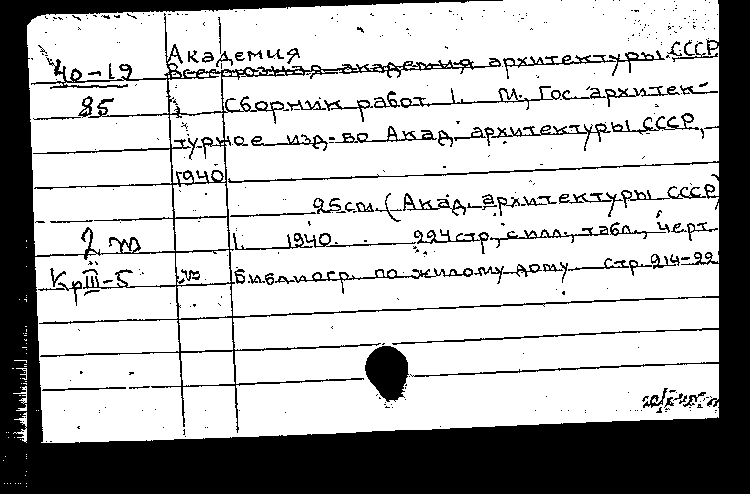 Академия
40-19 Всесоюзная академия архитектуры СССР
85 Сборник работ 1. М., Гос. архитек-
турное изд-во Акад. архитектуры СССР,
1940.
25см. (Акад. архитектуры СССР)
2 т 1. 1940. 224 стр., с илл., табл., черт.
КрIII-5 Библиогр. по жилому дому стр. 214-22